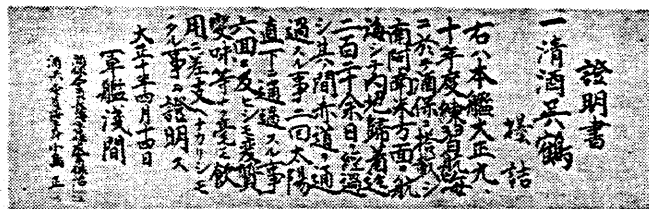 證明書
一清酒呉鶴
樽詰
右ハ本艦大正九、
十年度練習航海
ニ於テ酒保ニ搭載シ
南阿南米方面ヲ航
海シテ内地歸着迄
二百二十余日ヲ経過
シ其ノ間赤道ヲ通
過スル事二回太陽
直下ヲ通過スル事
六回ニ及ビシモ変質
変味等ナク毫モ飲
用ニ差支ナカリシモ
ノタル事ヲ證明ス
大正十年四月十四日
軍艦浅間